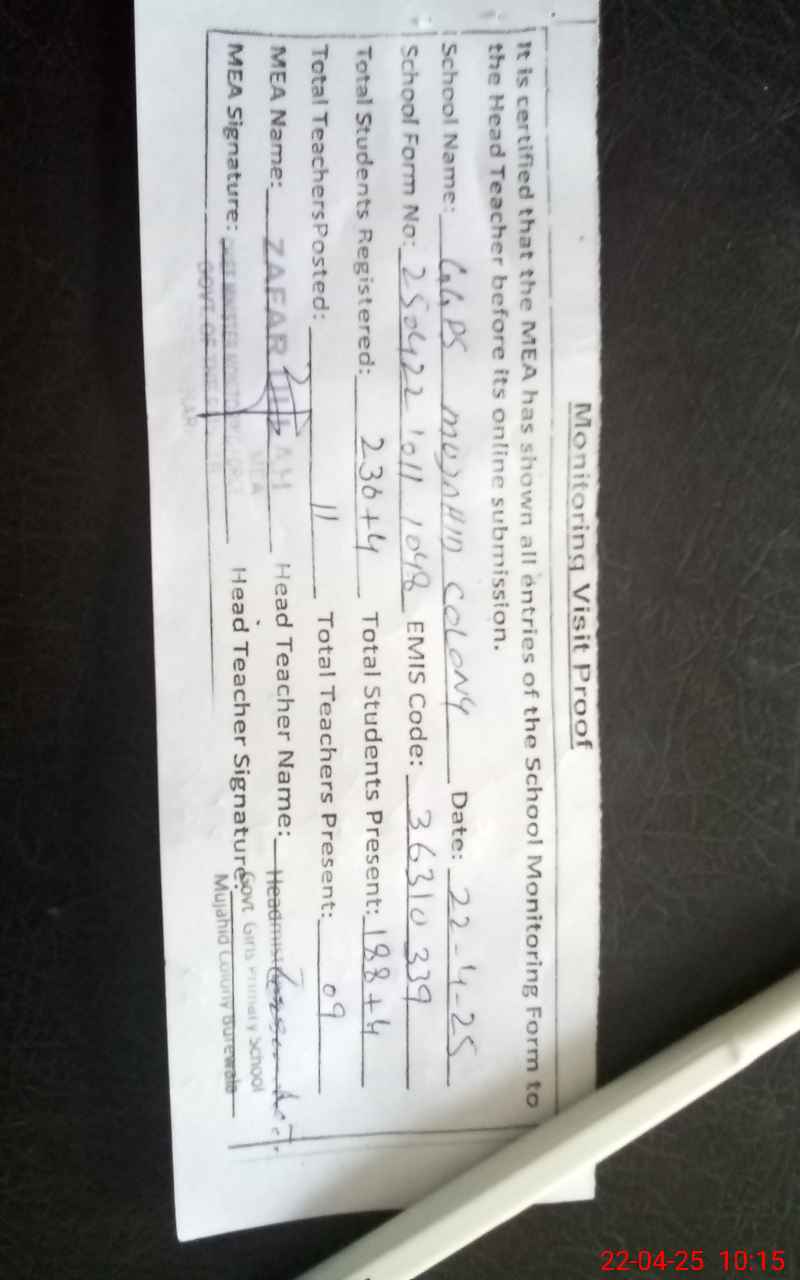 Monitoring Visit Proof
It is certified that the MEA has shown all entries of the School Monitoring Form to
the Head Teacher before its online submission.
School Name: GGPS MUJAHID COLONY Date: 22-4-25
School Form No: 2504221011 1048 EMIS Code: 36310339
Total Students Registered: 236+4 Total Students Present: 188+4
Total TeachersPosted: 11 Total Teachers Present: 09
MEA Name: ZAFAR ULLAH Head Teacher Name:
MEA
MEA Signature: Head Teacher Signature:
Govt Girls Primary School
Mujahid Colony Burewala
22-04-25 10:15